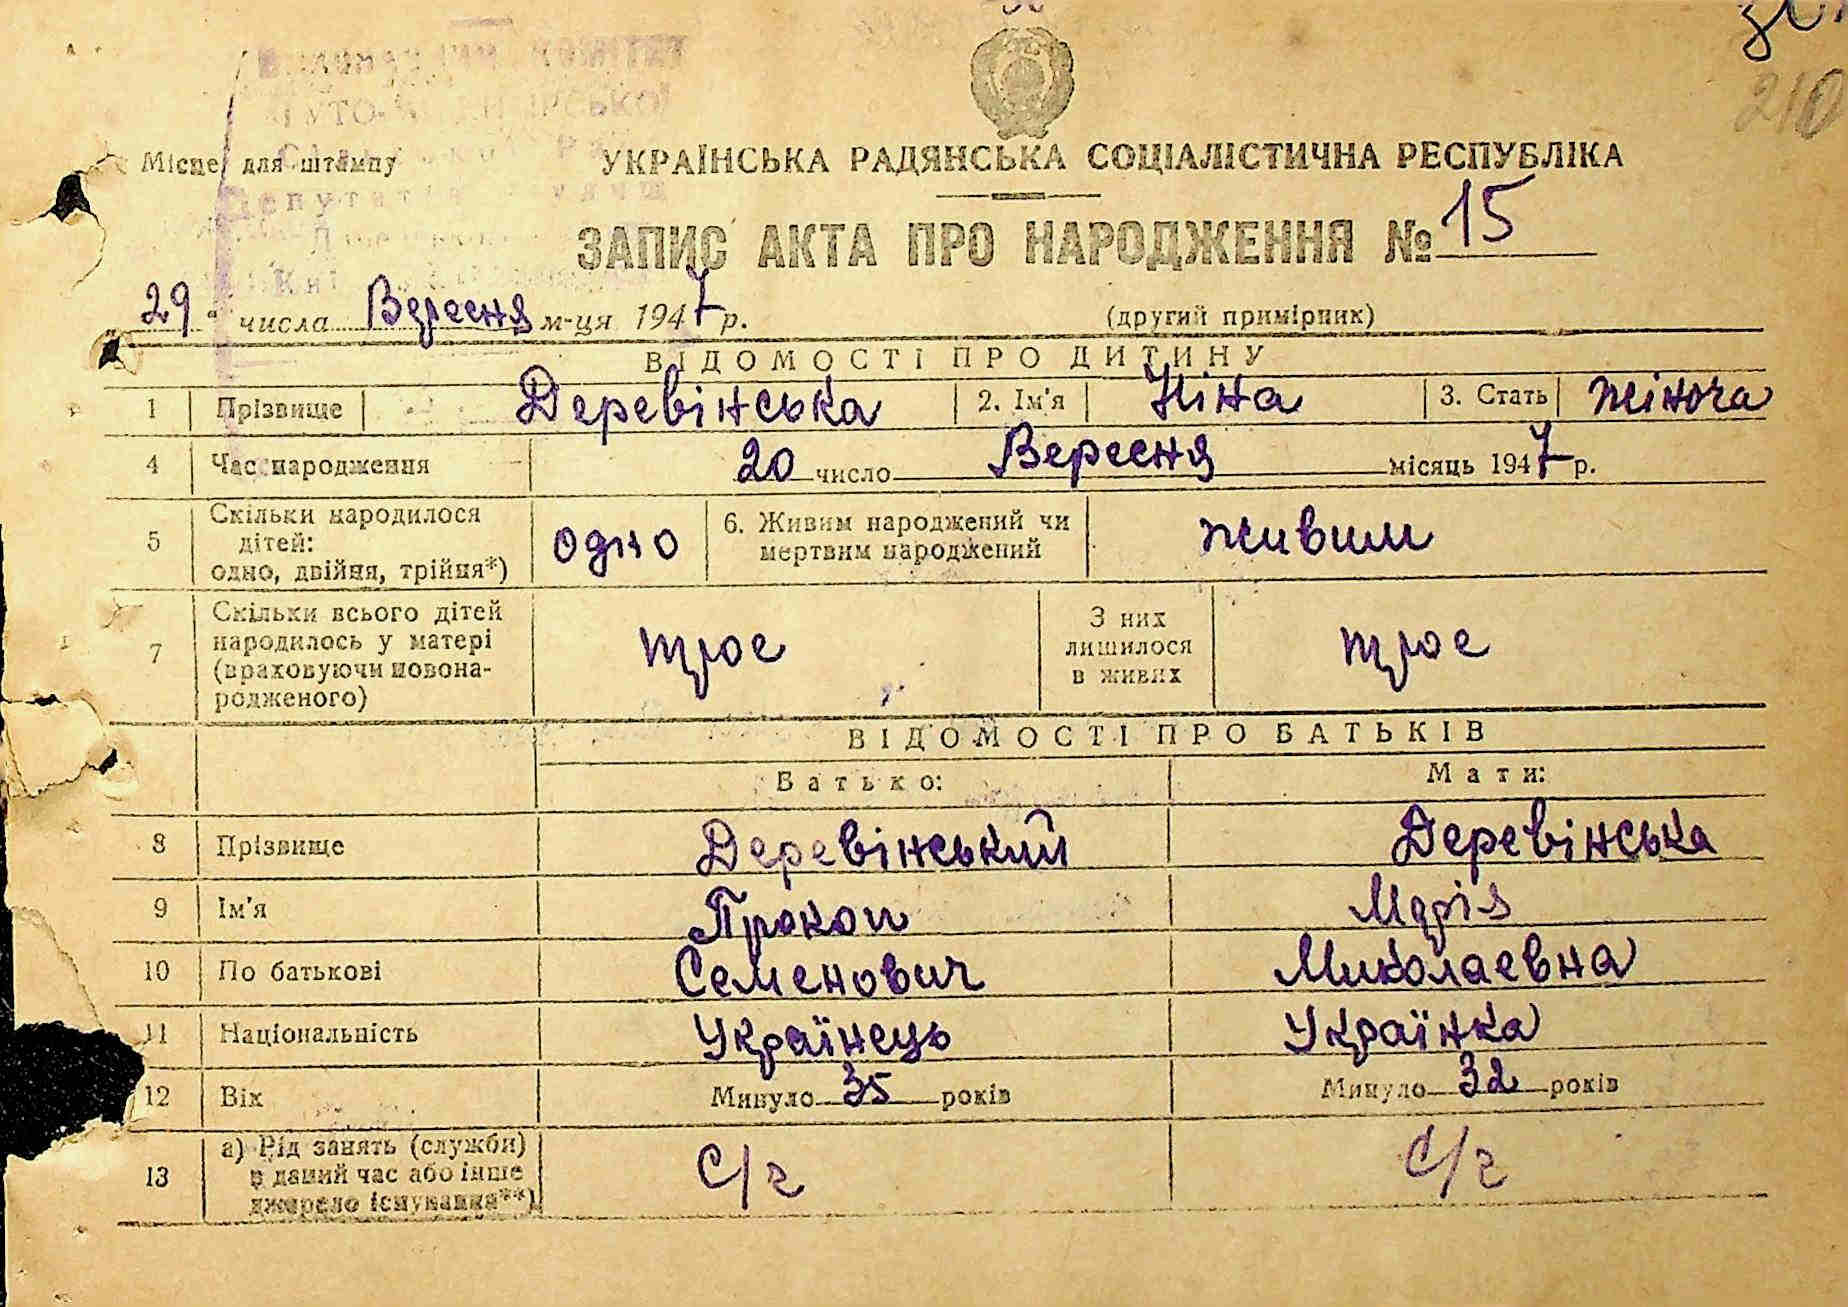 210
Місце для штампу
УКРАЇНСЬКА РАДЯНСЬКА СОЦІАЛІСТИЧНА РЕСПУБЛІКА
ЗАПИС АКТА ПРО НАРОДЖЕННЯ № 15
"29" числа Вересня м-ця 1947 р.
(другий примірник)
ВІДОМОСТІ ПРО ДИТИНУ
1 Прізвище Деревінська 2. Ім'я Ніна 3. Стать жіноча
4 Час народження 20 число Вересня місяць 1947 р.
5 Скільки народилося
дітей:
одно, двійня, трійня*)
одно
6. Живим народжений чи
мертвим народжений
живим
7 Скільки всього дітей
народилось у матері
(враховуючи новона-
родженого)
троє
З них
лишилося
в живих
троє
ВІДОМОСТІ ПРО БАТЬКІВ
Батько: Мати:
8 Прізвище Деревінський Деревінська
9 Ім'я Прокоп Марія
10 По батькові Семенович Миколаевна
11 Національність Українець Українка
12 Вік Минуло 35 років Минуло 32 років
13 а) Рід занять (служби)
в даний час або інше
джерело існування**)
С/г С/г